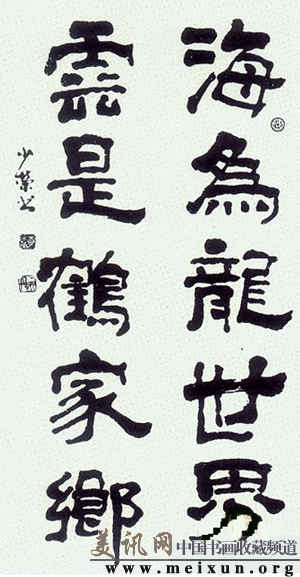 海為龍世界
雲是鶴家鄉
少華书
美讯网 中国书画收藏频道
www.meixun.org